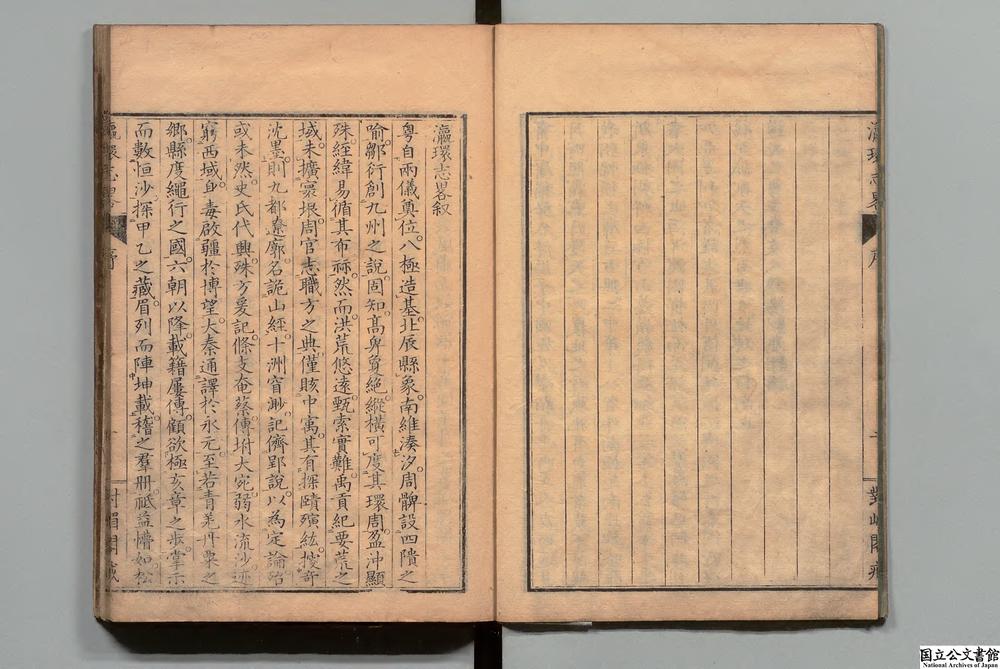 瀛環志畧
序
對嵋閣藏
瀛環志畧叙
粤自兩儀奠位八極造基北辰縣象南維湊汐周髀設四隤之
喻鄒衍創九州之說固知高卑敻絕縱橫可度其環周盈沖顯
殊經緯易循其布祢然而洪荒悠遠甄索實難禹貢紀要荒之
域未擴寰垠周官志職方之典僅賅中寓其有探賾殯紘搜奇
沈墨則九都遼廓名詭山經十洲窅渺記儕郢說以為定論殆
或未然史氏代興殊方爰記條支奄蔡傳坿大宛弱水流沙迹
窮西域身毒啟疆於博望大秦通譯於永元至若青羌丹粟之
鄉縣度繩行之國六朝以降載籍屢傳顧欲極亥章之步掌示
而數恒沙探甲乙之藏眉列而陣坤載稽之羣冊祗益懵如松
瀛環志畧
序
一
對嵋閣藏
国立公文書館
National Archives of Japan